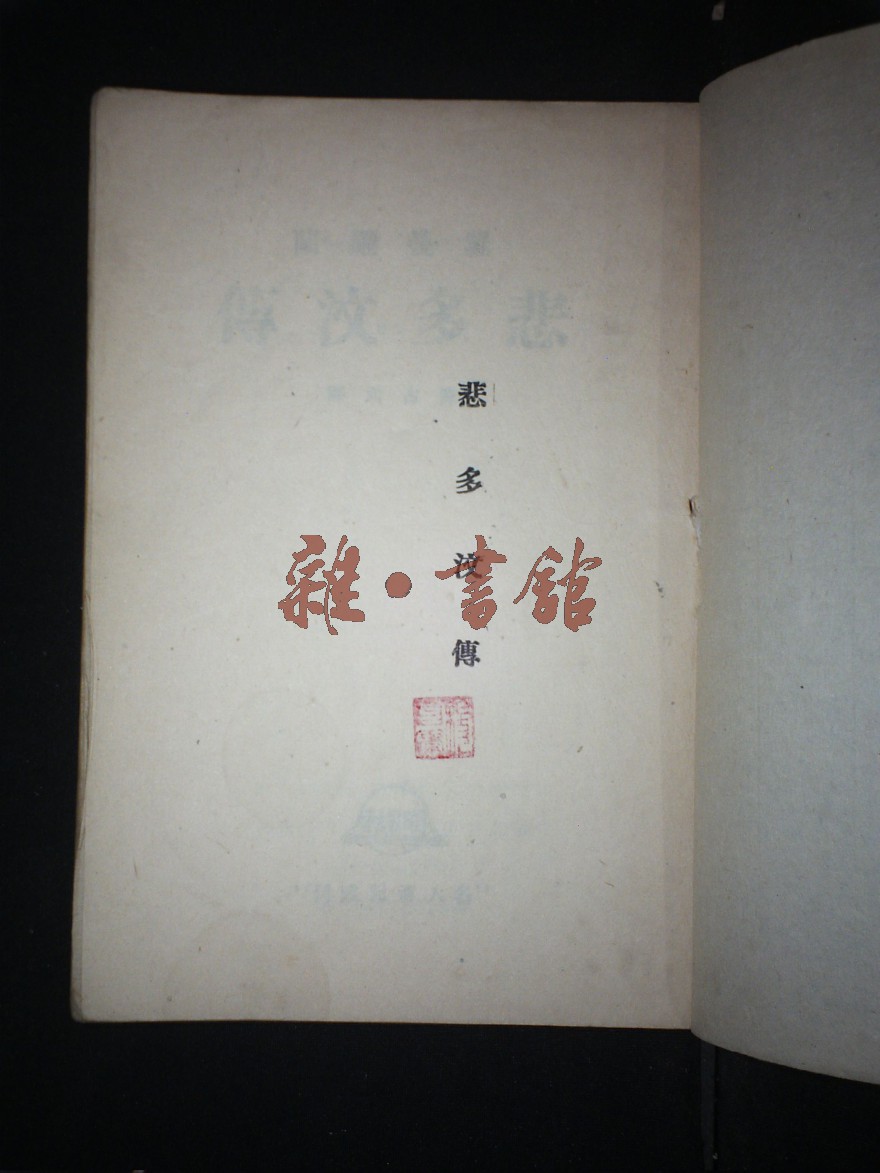 悲多汶傳
雜·書館